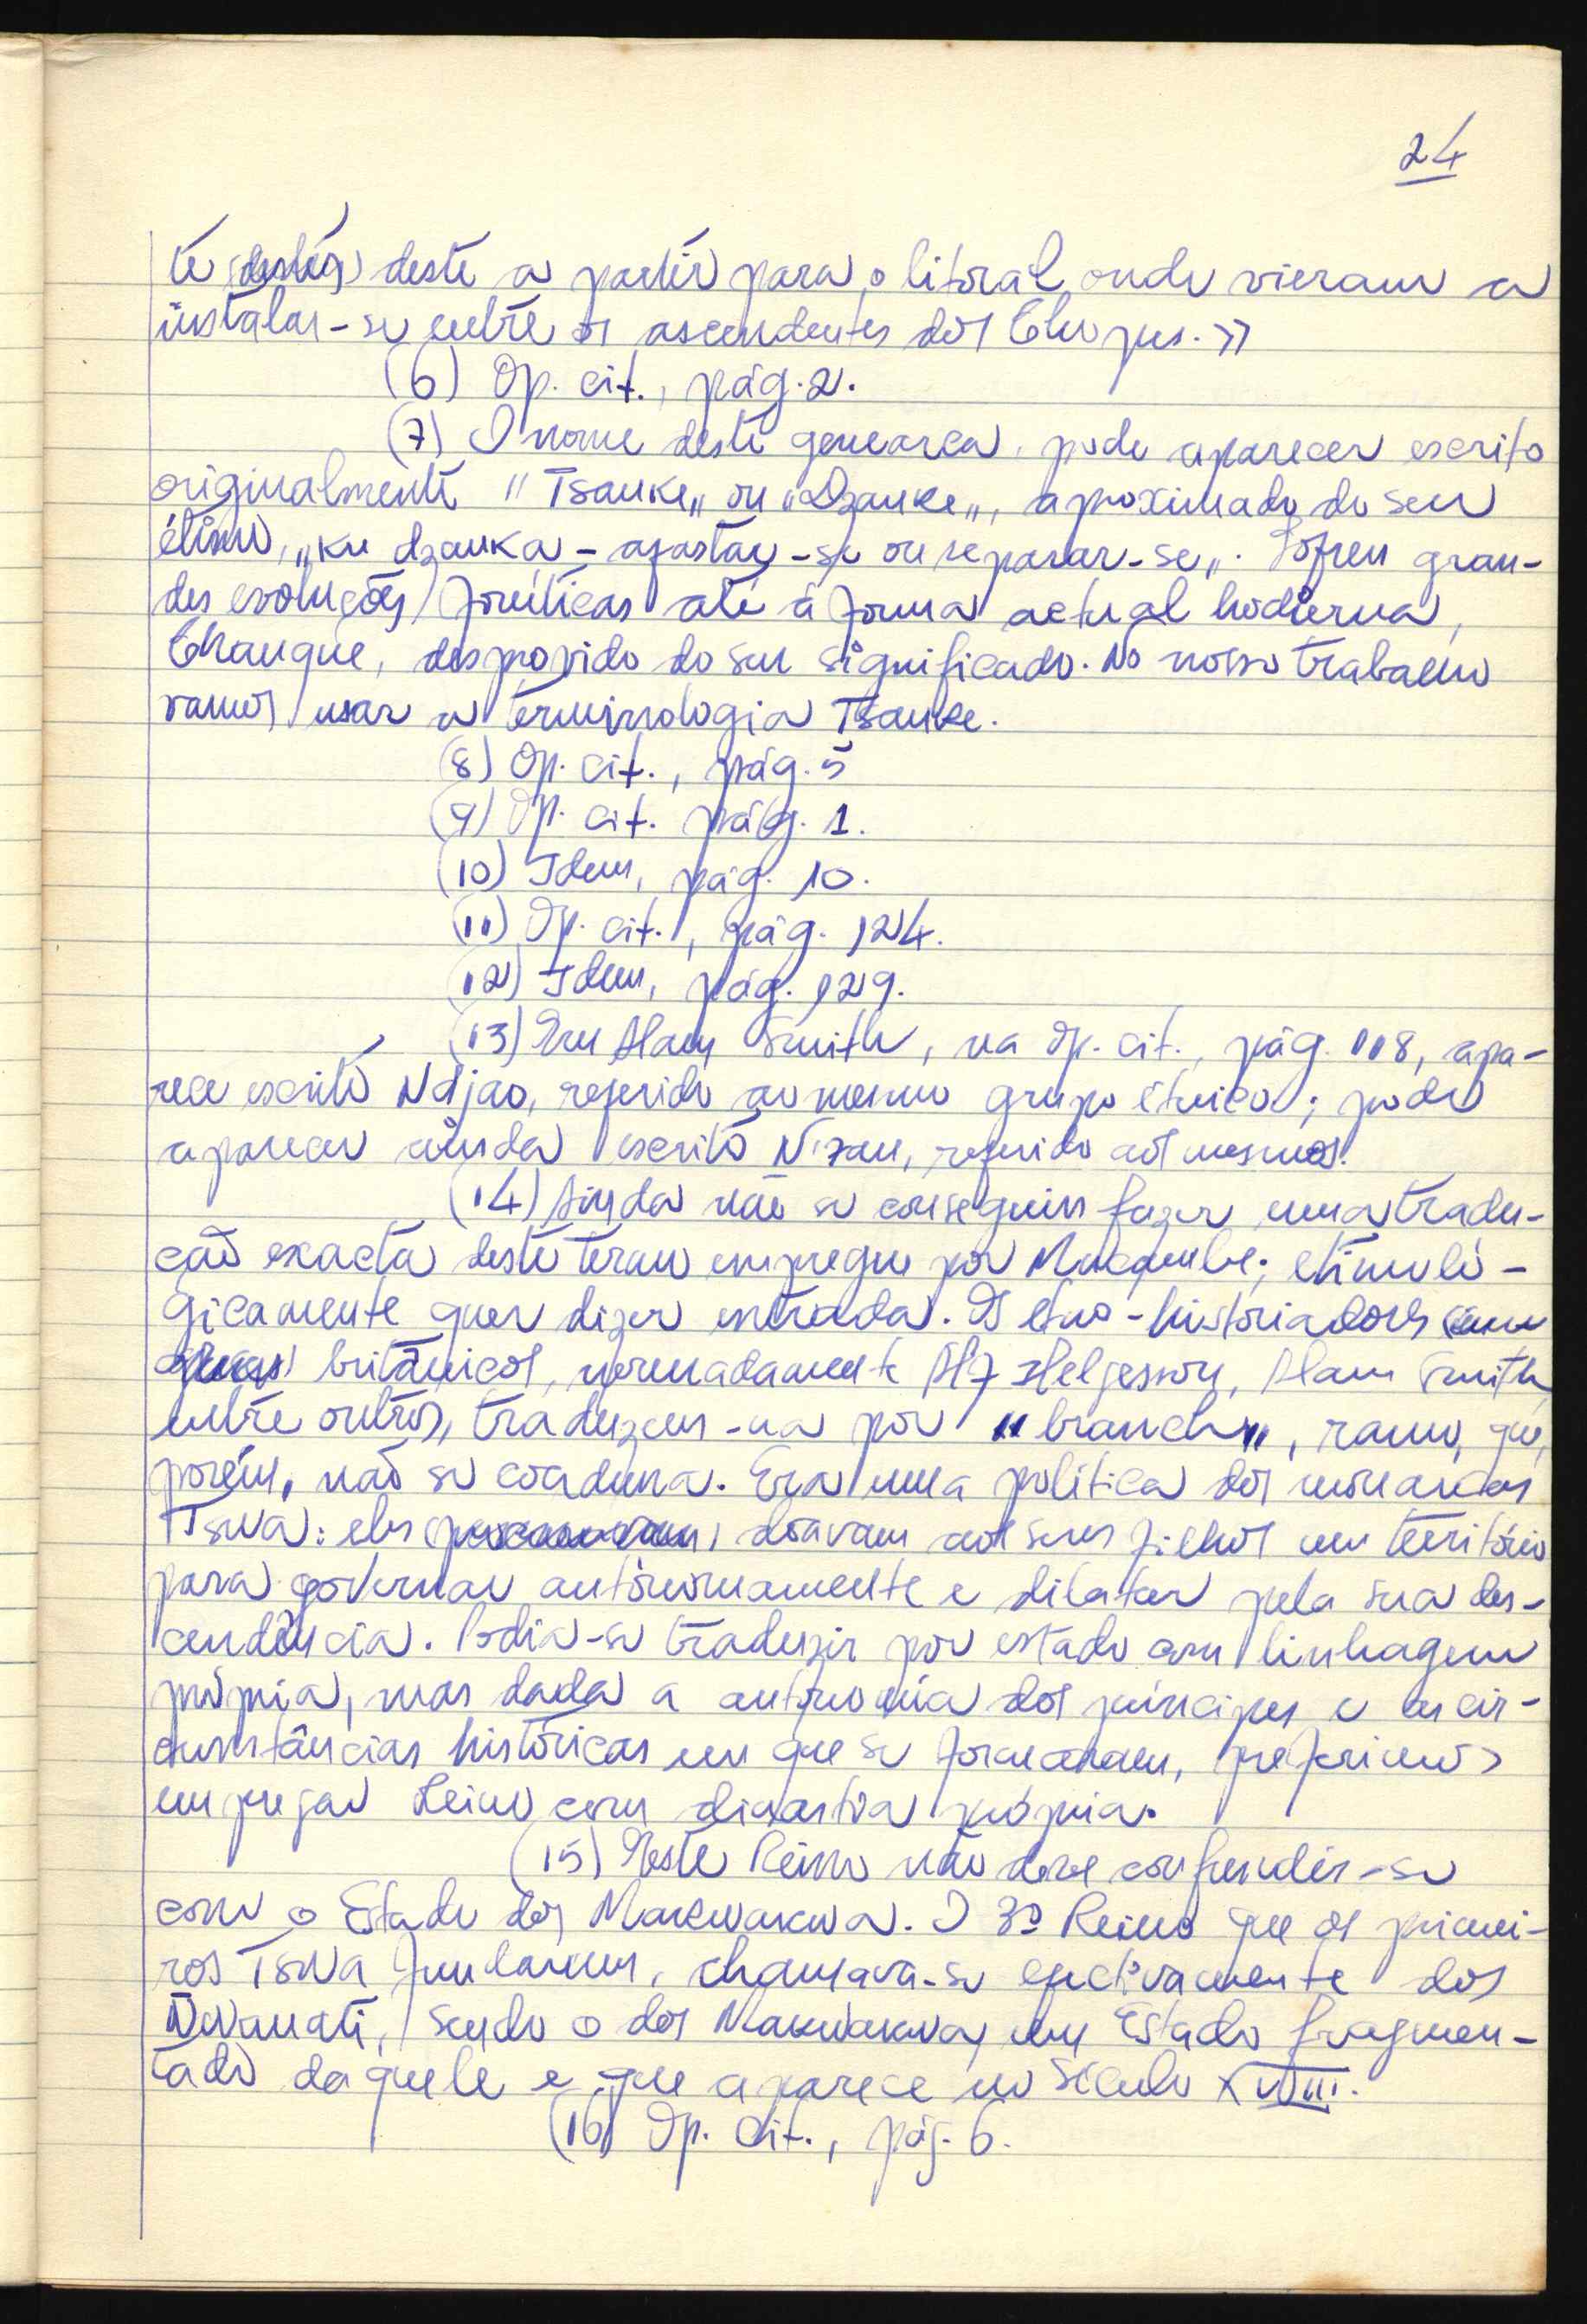 24
te deste a partir para o litoral, onde vieram a
instalar-se entre os ascendentes dos Chopes. »
(6) Op. cit., pág. 2.
(7) O nome deste genearca, pode aparecer escrito
originalmente "Tsanke„ ou "Dzanke„, aproximado do seu
étimo, „ku dzanka - afastar-se ou separar-se„. Sofreu gran-
des evoluções fonéticas até à forma actual hodierna,
Changue, desprovido do seu significado. No nosso trabalho
vamos usar a terminologia Tsanke.
(8) Op. cit., pág. 5
(9) Op. cit. pág. 1.
(10) Idem, pág. 10.
(11) Op. cit., pág. 124.
(12) Idem, pág. 129.
(13) Em Alan Smith, na Op. cit., pág. 118, apa-
rece escrito Ndjao, referido ao mesmo grupo étnico; pode
aparecer ainda escrito referido aos mesmos.
(14) Ainda não se conseguiu fazer uma tradu-
ção exacta deste termo empregue por etimoló-
gicamente quer dizer entrada. Os etno-historiadores
britânicos, nomeadamente Alf Helgesson, Alan Smith,
entre outros, traduzem-na por "branch„, ramo, que,
porém, não se coaduna. Era uma política dos monarcas
Tswa: eles doavam aos seus filhos um território
para governar autónomamente e dilatar pela sua des-
cendência. Podia-se traduzir por estado com linhagem
própria, mas dada a autonomia dos príncipes e as cir-
cunstâncias históricas em que se formaram, preferimos
empregar Reino com dinastia própria.
(15) Neste Reino não deve confundir-se
com o Estado dos Makwakwa. O 3º Reino que os primei-
ros Tswa fundaram, chamava-se efectivamente dos
sendo o dos Makwakwa, um Estado fragmen-
tado daquele e que aparece no século XVIII.
(16) Op. Cit., pág. 6.